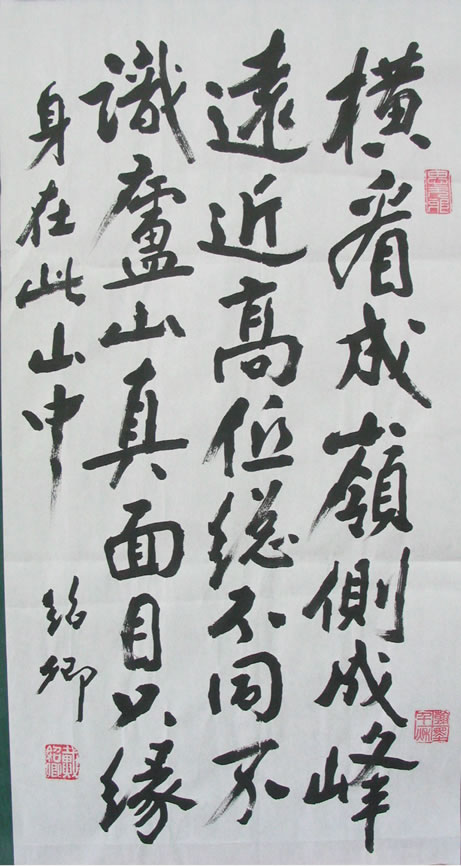 横看成嶺側成峰
遠近高低総不同不
識廬山真面目只緣
身在此山中
卿